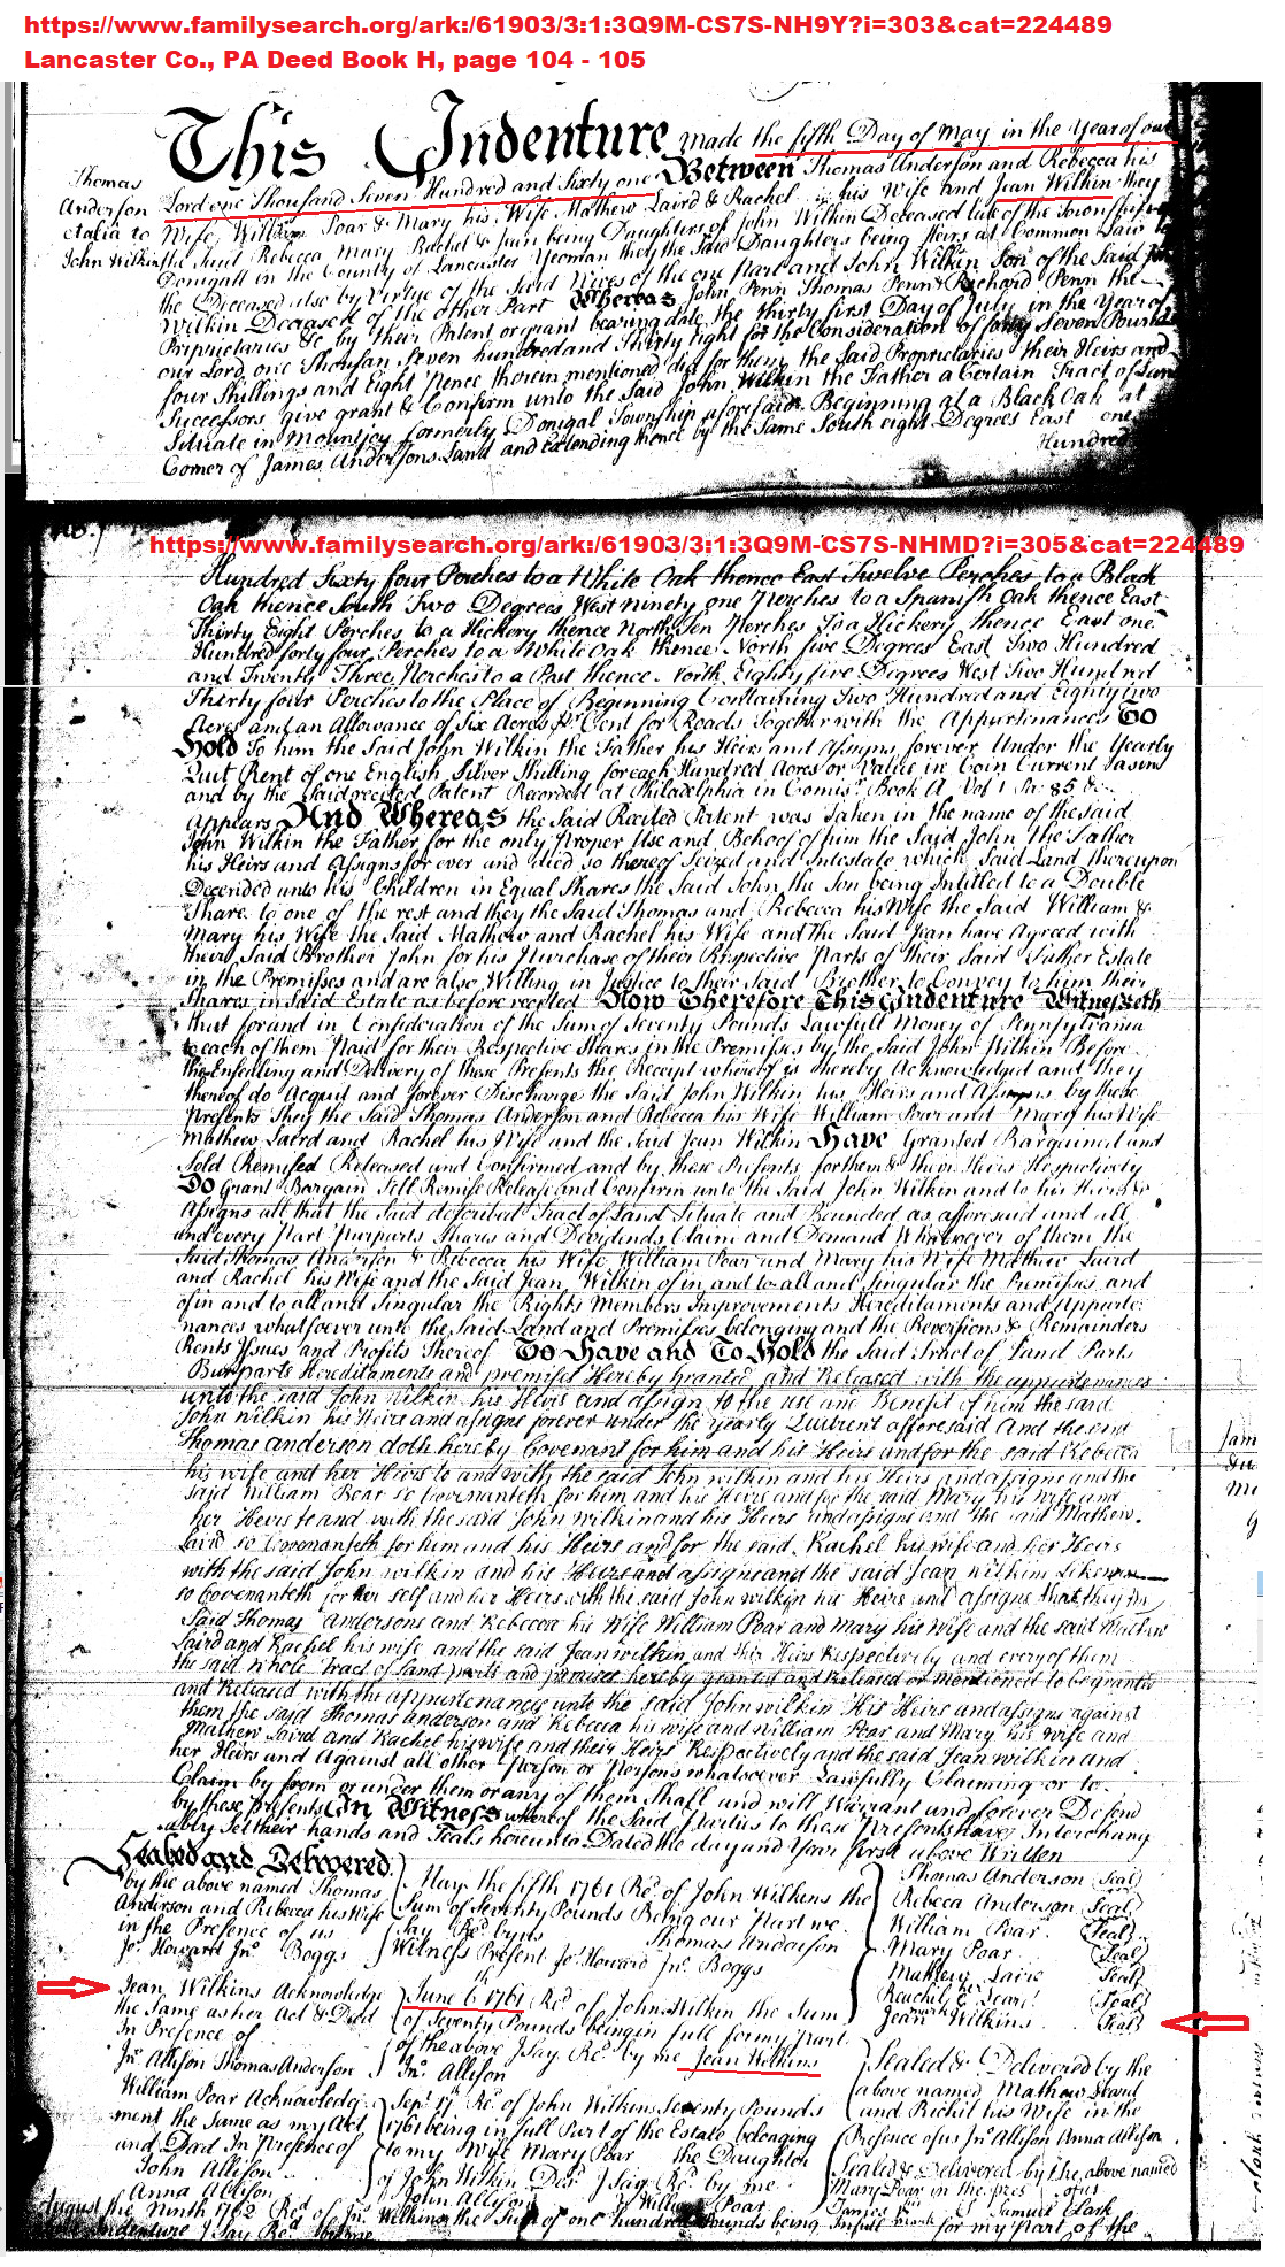 https://www.familysearch.org/ark:/61903/3:1:3Q9M-CS7S-NH9Y?i=303&cat=224489
Lancaster Co., PA Deed Book H, page 104 - 105
This Indenture made the fifth Day of May in the Year of our
Thomas
Anderson
etalia to
John Wilkin
Lord one Thousand Seven Hundred and Sixty one Between Thomas Anderson and Rebecca his
Wife, William Poar & Mary his Wife Mathew Laird & Rachel his Wife and Jean Wilkin they
the Said Rebecca Mary Rachel & Jean being Daughters of John Wilkin Deceased late of the Township
Donigall in the County of Lancaster Yeoman they the Said Daughters being Heirs at Common Law to
the Deceased also by Virtue of the Said Wives of the one Part and John Wilkin Son of the Said
Wilkin Deceased of the Other Part Whereas John Penn Thomas Penn & Richard Penn the
Propriataries &c by their Patent or grant bearing date the thirty first Day of July in the Year of
our Lord one Thousan Seven hundred and Thirty eight for the Consideration of forty Seven Pounds
four Shillings and Eight Pence therein mentioned did for them the Said Proprietaries their Heirs and
Successors give grant & Confirm unto the Said John Wilkin the Father a Certain Tract of Land
Situate in Mountjoy formerly Donigal Township aforesaid Beginning at a Black Oak at
Corner of James Andersons Land and Extending thence by the Same South eight Degrees East one
Hundred
https://www.familysearch.org/ark:/61903/3:1:3Q9M-CS7S-NHMD?i=305&cat=224489
Hundred Sixty four Perches to a White Oak thence East Twelve Perches to a Black
Oak thence South Two Degrees West ninety one Perches to a Spanish Oak thence East
Thirty Eight Perches to a Hickery thence North Ten Perches To a Hickery thence East one
Hundred forty four Perches to a White Oak thence North five Degrees East Two Hundred
and Twenty Three Perches to a Post thence North Eighty five Degrees West Two Hundred
Thirty four Perches to the Place of Beginning Containing Two Hundred and Eighty two
Acres and an Allowance of Six Acres Pr Cent for Roads Together with the Appurtenances To
Hold To him the Said John Wilkin the Father his Heirs and Assigns forever Under the Yearly
Quit Rent of one English Silver Shilling for each Hundred Acres or Value in Coin Current
and by the Said recited Patent Recorded at Philadelphia in Book A Vol 1 Pa: 85 &c
Appears And Whereas the Said Recited Patent was Taken in the name of the Said
John Wilkin the Father for the only Proper Use and Behoof of him the Said John the Father
his Heirs and Assigns for ever and died so thereof Seized and Intestate which Said Land thereupon
Decended unto his Children in Equal Shares the Said John the Son being Intitled to a Double
Share to one of the rest and they the Said Thomas and Rebecca his Wife the Said William &
Mary his Wife the Said Mathew and Rachel his Wife and the Said Jean have Agreed with
their Said Brother John for his Purchase of their Respective Parts of their Said Father Estate
in the Premisses and are also Willing in Justice to their Said Brother to Convey to him their
Shares in Said Estate as before recited Now Therefore This Indenture Witnesseth
that for and in Consideration of the Sum of Seventy Pounds Lawfull Money of Pennsylvania
to each of them Paid for their Respective Shares in the Premisses by the Said John Wilkin Before
the Ensealing and Delivery of these Presents the Receipt whereof is hereby Acknowledged and they
thereof do Acquit and forever Discharge the Said John Wilkin his Heirs and Assigns by these
Presents They the Said Thomas Anderson and Rebecca his Wife William Poar and Mary his Wife
Mathew Laird and Rachel his Wife and the Said Jean Wilkin Have Granted Bargained and
Sold Remised Released and Confirmed and by these Presents for them & their Heirs Respectively
Do Grant Bargain Sell Remise Release and Confirm unto the Said John Wilkin and to his Heirs &
Assigns all that the Said described Tract of Land Situate and Bounded as afforesaid and all
and every Part Purparts Shares and Dividends Claim and Demand Whatsoever of them the
Said Thomas Anderson & Rebecca his Wife William Poar and Mary his Wife Mathew Laird
and Rachel his Wife and the Said Jean Wilkin of in and to all and Singular the Premisses and
of in and to all and Singular the Rights Members Improvements Hereditaments and Appurte
nances whatsoever unto the Said Land and Premises belonging and the Reversions & Remainders
Rents Issues and Profits Thereof To Have and To Hold the Said Tract of Land Parts
Purparts Hereditaments and premises Hereby Granted and Released with the appurtenances
unto the said John Wilkin his Heirs and assigns to the use and Benefit of him the said
John Wilkin his Heirs and assigns forever under the yearly Quitrent afforesaid And the said
Thomas anderson doth hereby Covenant for him and his Heirs and for the said Rebecca
his wife and her Heirs to and with the said John wilkin and his Heirs and assigns and the
said William Poar so Covenanteth for him and his Heirs and for the said Mary his wife and
her Heirs to and with the said John wilkin and his Heirs and assigns and the said Mathew
Laird so Covenanteth for him and his Heirs and for the said Rachel his wife and her Heirs
with the said John wilkin and his Heirs and assigns and the said Jean Wilkin Likewise
so Covenanteth for her self and her Heirs with the said John wilkin his Heirs and assigns that they the
Said Thomas andersons and Rebecca his Wife William Poar and Mary his Wife and the said Mathew
Laird and Rachel his wife and the said Jean wilkin and their Heirs Respectively and every of them
the said whole Tract of Land parts and premises hereby granted and Released or mentioned to be granted
and Released with the appurtenances unto the said John wilkin His Heirs and assigns against
them the said Thomas anderson and Rebecca his wife and william Poar and Mary his wife and
Mathew Laird and Rachel his wife and their Heirs Respectively and the said Jean wilkin and
her Heirs and Against all other Person or Persons whatsoever Lawfully Claiming or to
Claim by from or under them or any of them Shall and will Warrant and forever Defend
by these presents In Witness whereof the Said Parties to these Presents have Interchang
ably Set their hands and Seals hereunto Dated the day and Year first above Written
Sealed and Delivered
by the above named Thomas
Anderson and Rebecca his Wife
in the Presence of us
Jos. Howard Jno. Boggs
May the fifth 1761 Recd. of John Wilkins the
Sum of Seventy Pounds Being our Part we
Say Recd by us Thomas Anderson
Witness Present Jos. Howard Jno. Boggs
Thomas Anderson (Seal)
Rebeca Anderson (Seal)
William Poar (Seal)
Mary Poar (Seal)
Mathew Laird (Seal)
Rachel Leard (Seal)
mark
Jean Wilkins (Seal)
Jean Wilkins Acknowledge
the Same as her Act & Deed
In Presence of
Jno. Allison Thomas Anderson
June 6th 1761 Recd of John Wilkin the Sum
of Seventy Pounds being in full for my Part
of the above I Say Recd by me Jean Wilkins
Jno. Allison
William Poar Acknowledg
ment the Same as my Act
and Deed In Presence of
John Allison
Anna Allison
Sept 17th Recd of John Wilkins Seventy Pounds
1761 being in full Part of the Estate belonging
to my Wife Mary Poar the Daughter
of John Wilkin Decd I Say Recd by me
John Allison William Poar
Sealed & Delivered by the
above named Mathew Leard
and Richel his Wife in the
Presence of us Jno Allison Anna Allison
Sealed & Delivered by the above named
Mary Poar in the pres of us
James Samuel Clark
mark
August the Ninth 1762 Recd of Jno. Wilkins the Sum of one hundred Pounds being Infull for my Part of the
above Indenture I Say Recd